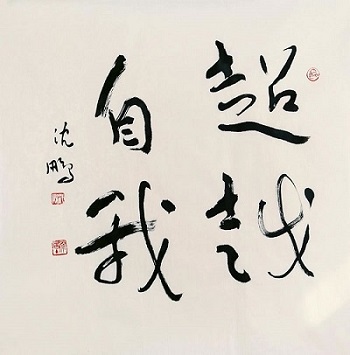 超越
自我
沈鹏